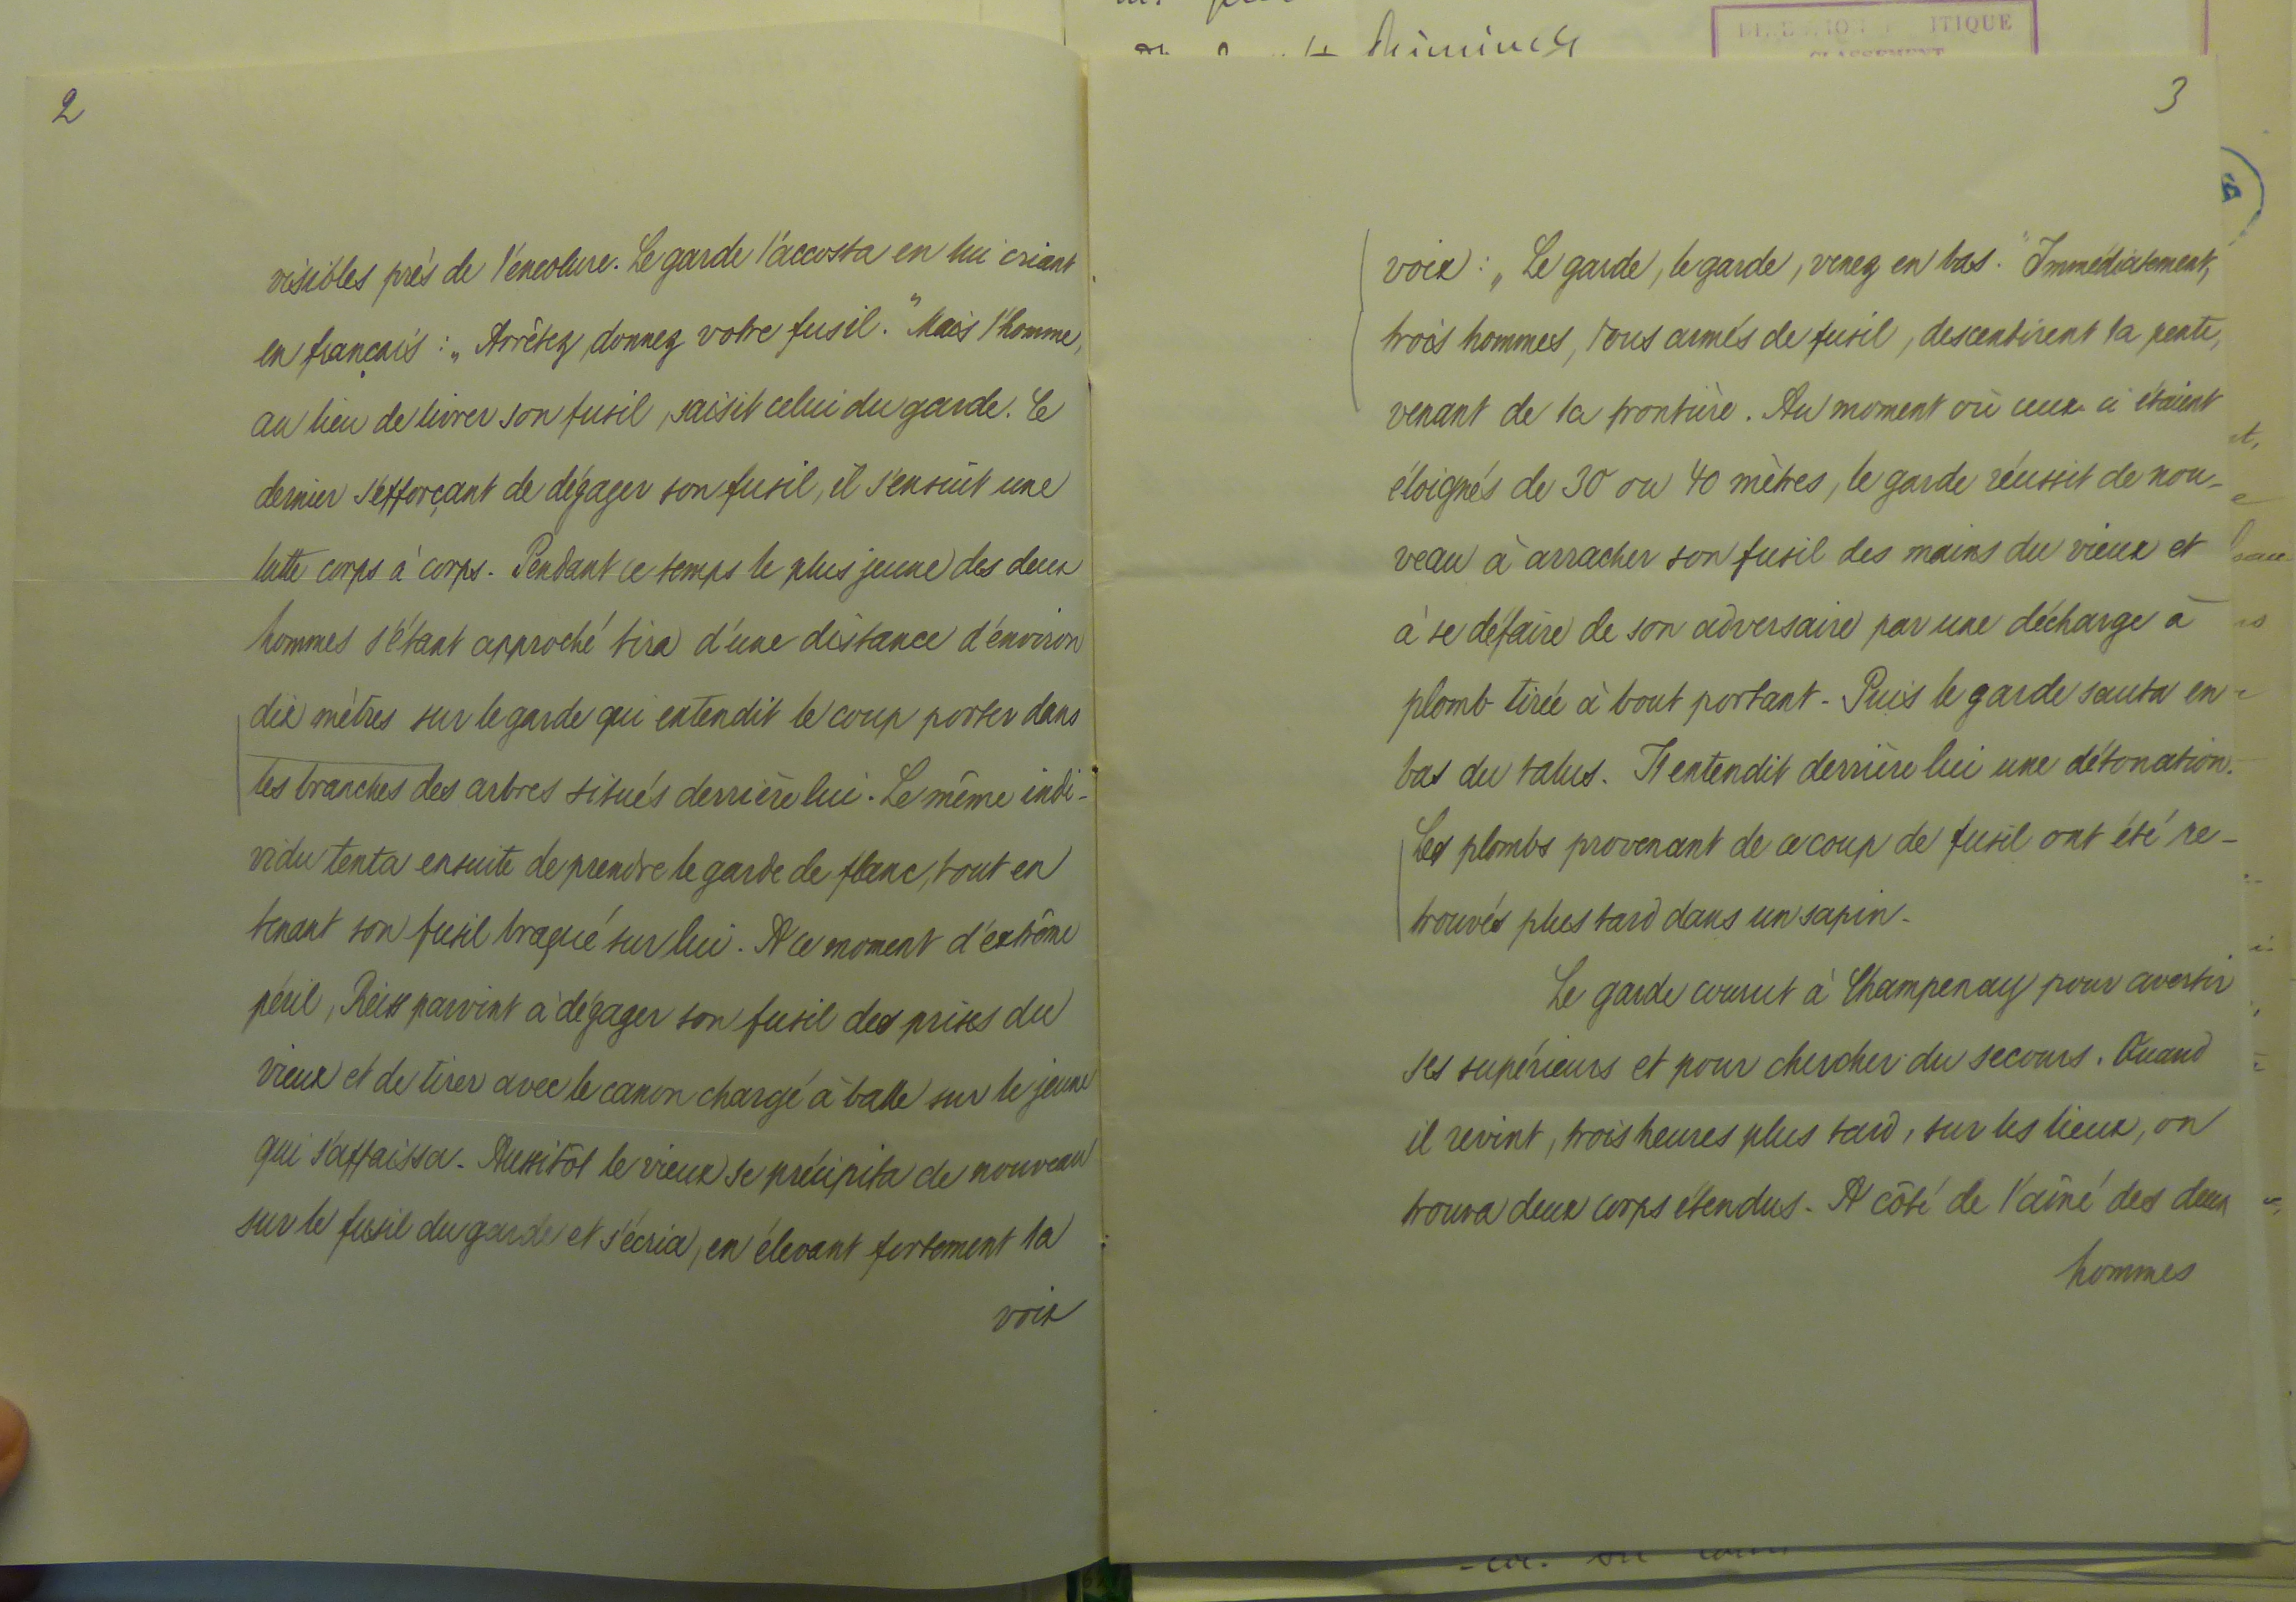 2
visibles près de l'encolure. Le garde l'accosta en lui criant
en français : „Arrêtez, donnez votre fusil." Mais l'homme,
au lieu de livrer son fusil, saisit celui du garde. Ce
dernier s'efforçant de dégager son fusil, il s'ensuit une
lutte corps à corps. Pendant ce temps le plus jeune des deux
hommes s'étant approché tira d'une distance d'environ
dix mètres sur le garde qui entendit le coup porter dans
les branches des arbres situés derrière lui. Le même indi-
vidu tenta ensuite de prendre le garde de flanc, tout en
tenant son fusil braqué sur lui. A ce moment d'extrême
péril, Reiss parvint à dégager son fusil des prises du
vieux et de tirer avec le canon chargé à balle sur le jeune
qui s'affaissa. Aussitôt le vieux se précipita de nouveau
sur le fusil du garde et s'écria, en élevant fortement la
voix
ITIQUE
CLASSEMENT
3
voix : „Le garde, le garde, venez en bas." Immédiatement,
trois hommes, tous armés de fusil, descentirent la pente,
venant de la frontière. Au moment où ceux-ci étaient
éloignés de 30 ou 40 mètres, le garde réussit de nou-
veau à arracher son fusil des mains du vieux et
à se défaire de son adversaire par une décharge à
plomb tirée à bout portant. Puis le garde sauta en
bas du talus. Il entendit derrière lui une détonation.
Les plombs provenant de ce coup de fusil ont été re-
trouvés plus tard dans un sapin.
Le garde courut à Champenay pour avertir
ses supérieurs et pour chercher du secours. Quand
il revint, trois heures plus tard, sur les lieux, on
trouva deux corps étendus. A côté de l'aîné des deux
hommes